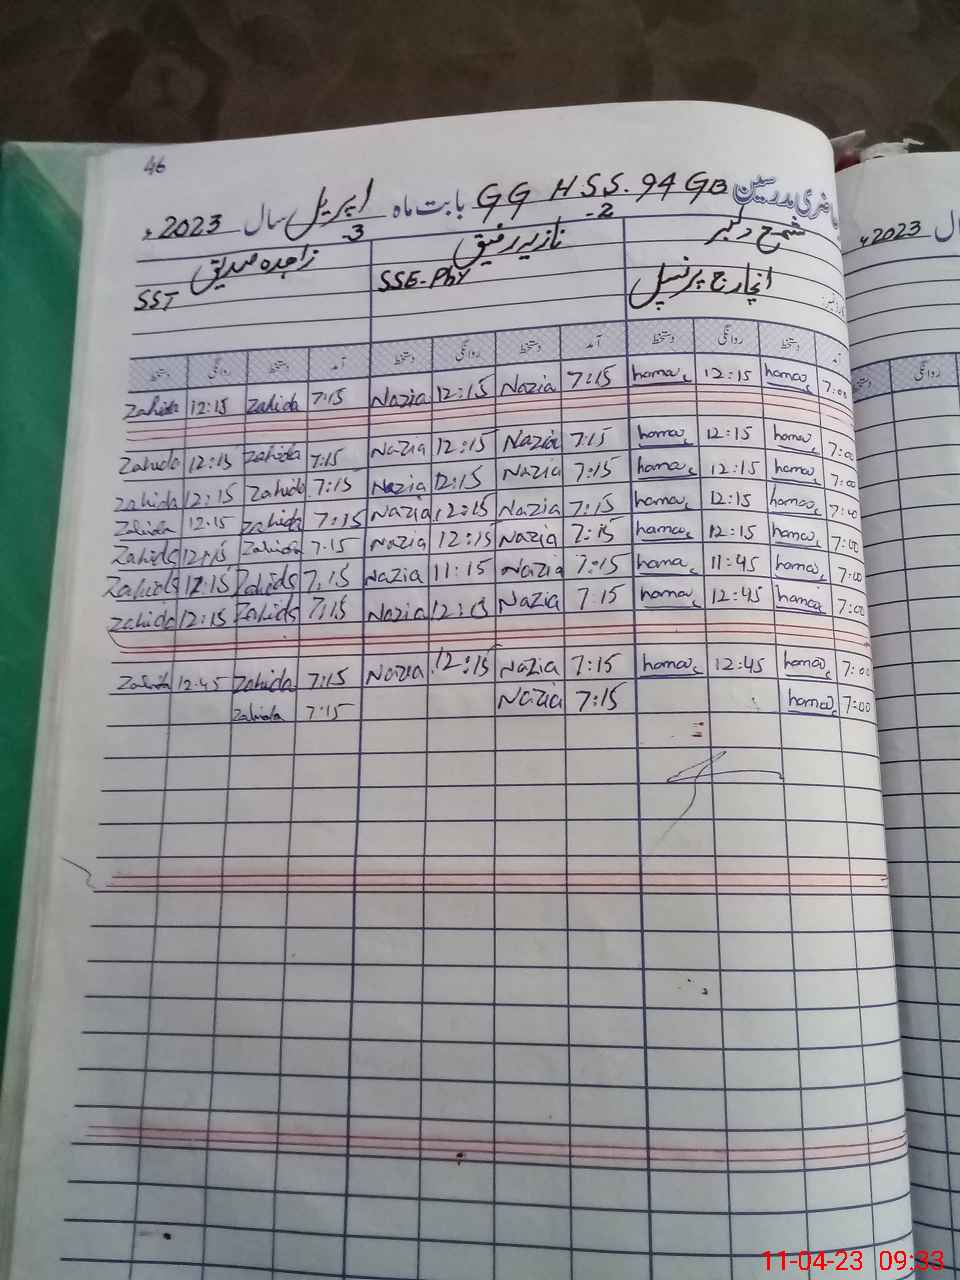 46
حاضری مدرسین GG HSS. 94 GB بابت ماہ اپریل سال 2023ء
شمع دلبر 2- نازیہ رفیق 3- زاہدہ صدیق
انچارج پرنسپل SSE-Phy SST
آمد دستخط روانگی دستخط آمد دستخط روانگی دستخط آمد دستخط روانگی دستخط
7:00 homa 12:15 homa 7:15 Nazia 12:15 Nazia 7:15 Zahida 12:15 Zahida
7:00 homa 12:15 homa 7:15 Nazia 12:15 Nazia 7:15 Zahida 12:15 Zahida
7:00 homa 12:15 homa 7:15 Nazia 12:15 Nazia 7:15 Zahida 12:15 Zahida
7:00 homa 12:15 homa 7:15 Nazia 12:15 Nazia 7:15 Zahida 12:15 Zahida
7:00 homa 12:15 homa 7:15 Nazia 12:15 Nazia 7:15 Zahida 12:15 Zahida
7:00 homa 11:45 homa 7:15 Nazia 11:15 Nazia 7:15 Zahida 12:15 Zahida
7:00 homa 12:45 homa 7:15 Nazia 12:15 Nazia 7:15 Zahida 12:15 Zahida
7:00 homa 12:45 homa 7:15 Nazia 12:15 Nazia 7:15 Zahida 12:45 Zahida
7:00 homa 7:15 Nazia 7:15 Zahida
سال 2023ء
روانگی دستخط
11-04-23 09:33